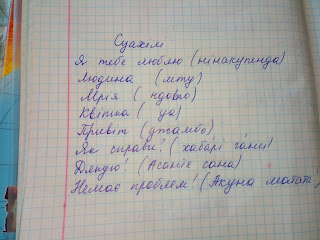 Суахілі
Я тебе люблю (нінакупенда)
Людина (мту)
Мрія (ндото)
Квітка (уа)
Привіт (джамбо)
Як справи? (хабарі гані)
Дякую! (Асанте сана)
Немає проблем! (Акуна матата)